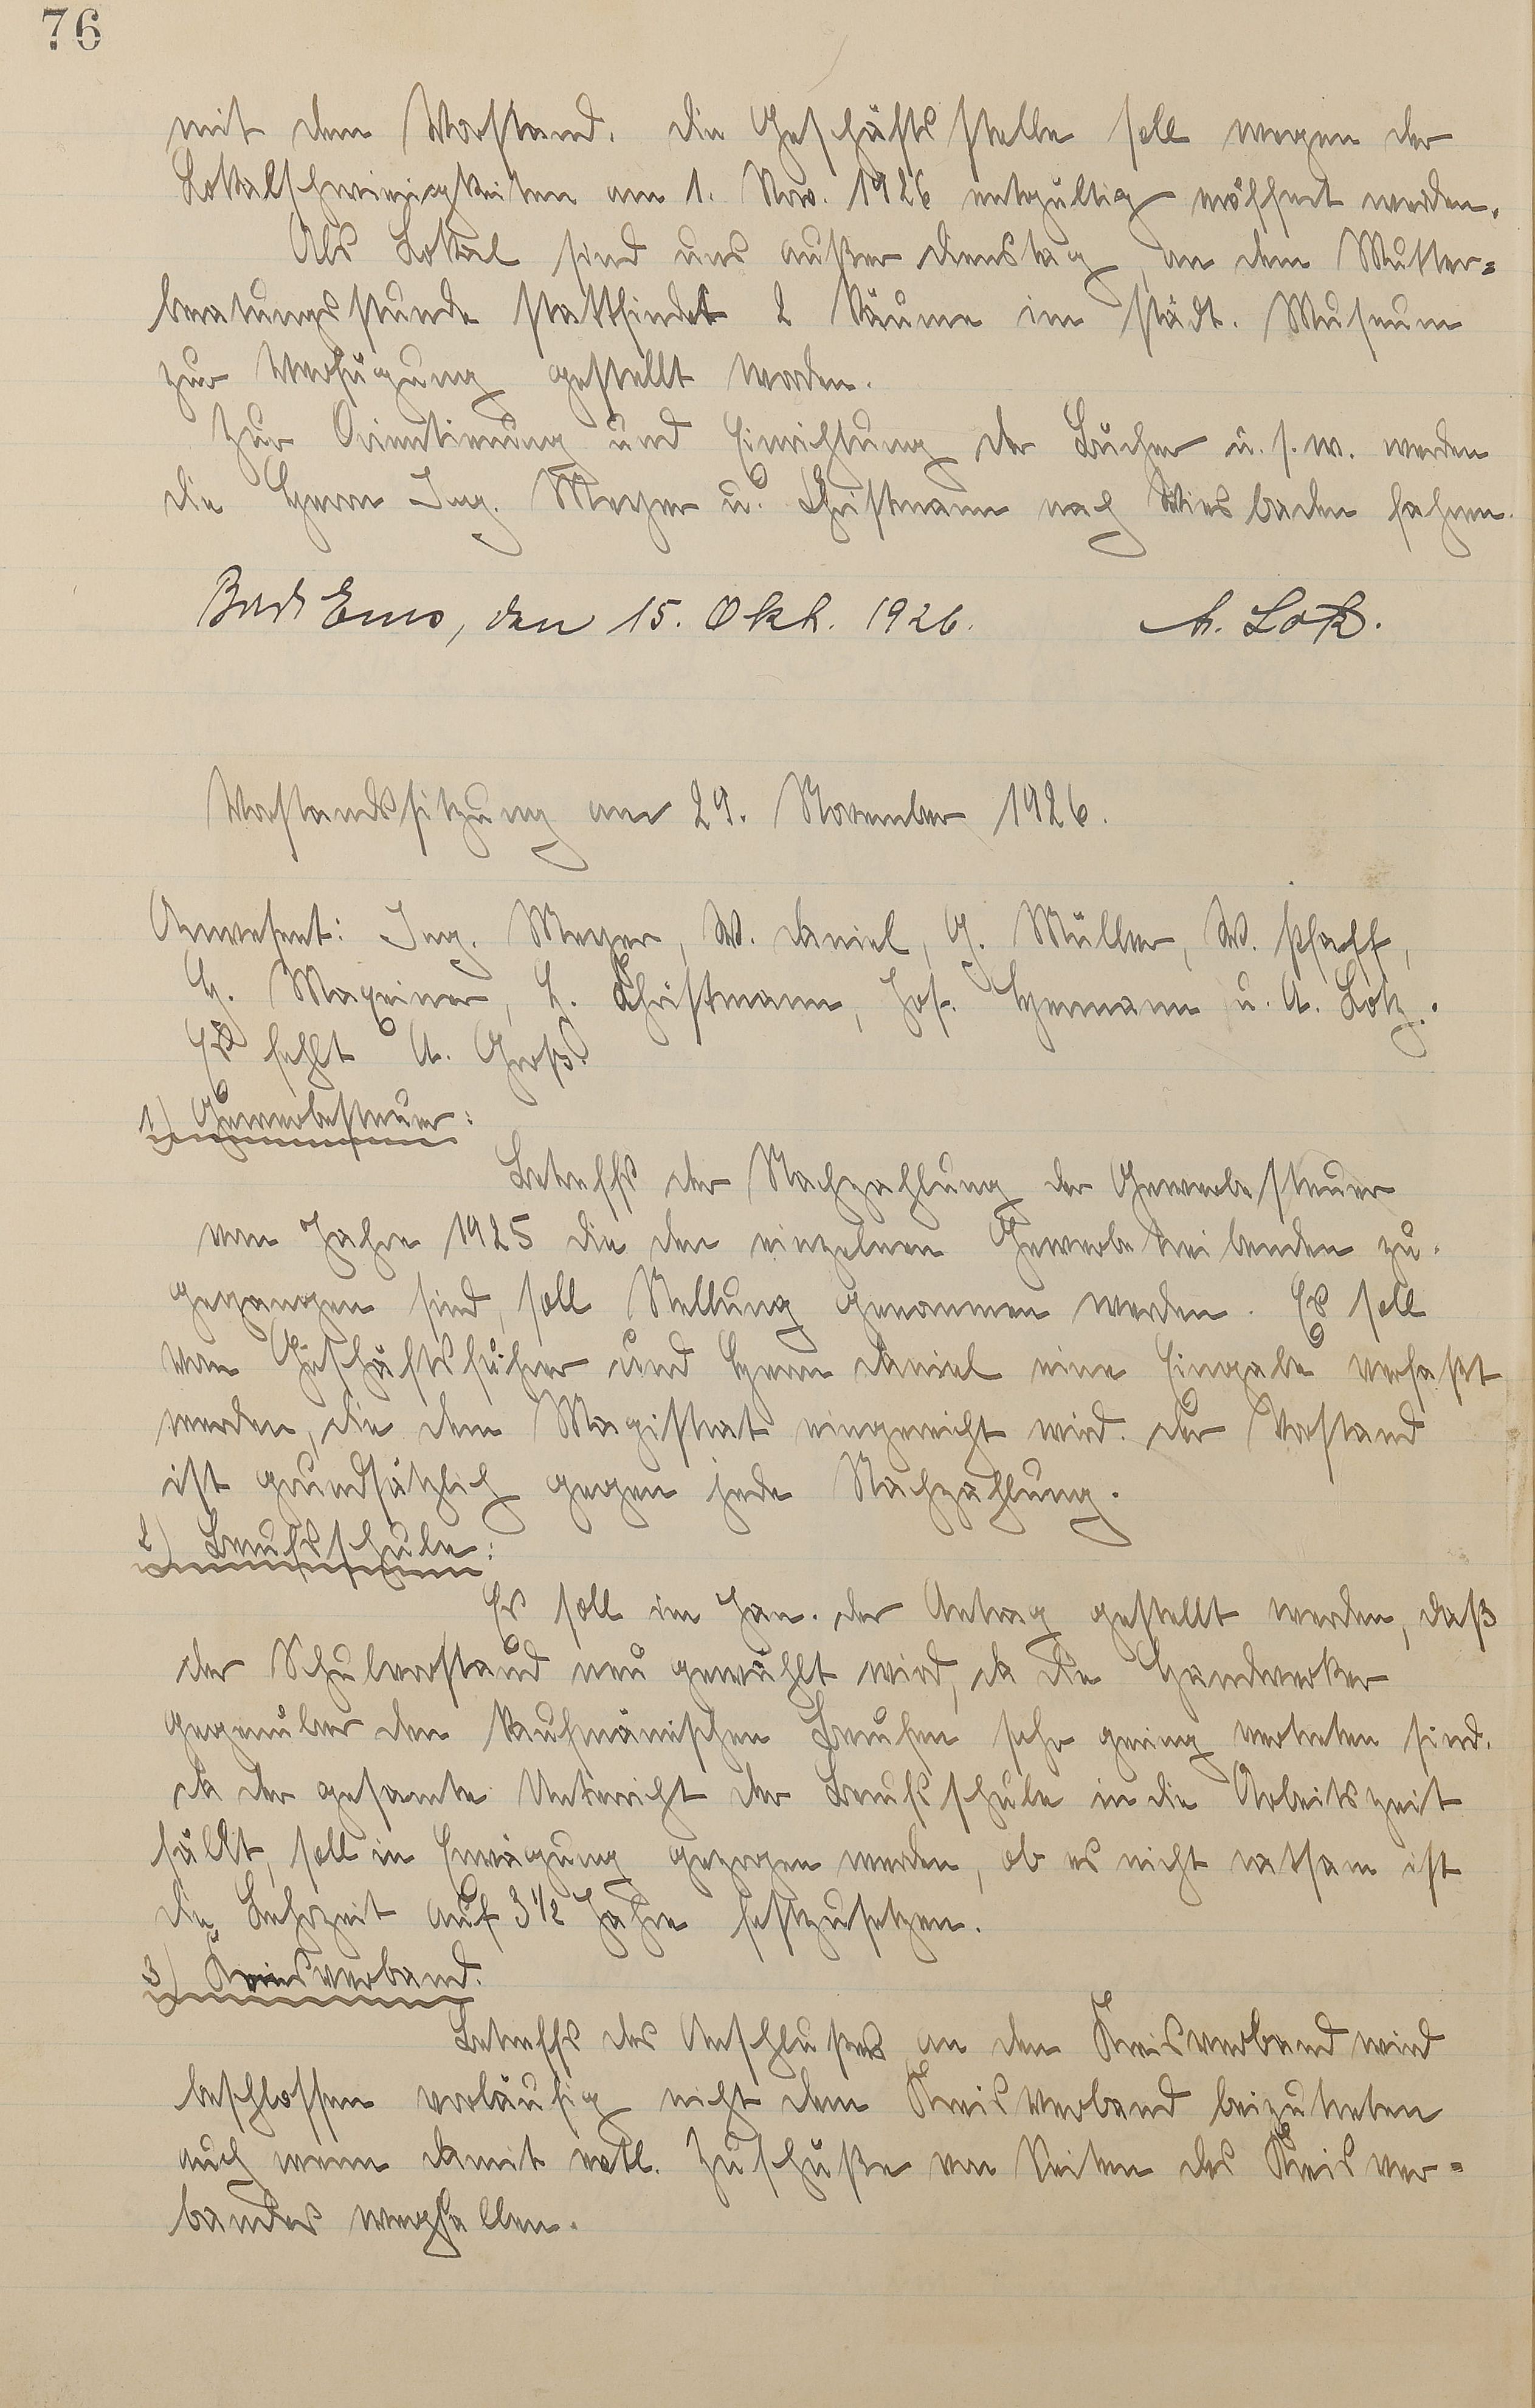 76
mit dem Vorstand. Die Geschäftsstelle soll wegen der
Lokalschwierigkeiten am 1. Nov. 1926 entgültig eröffnet werden.
Als Lokal sind uns außer Dienstag, an dem Mutter=
beratungsstunde stattfindet 2 Räume im städt. Museum
zur Verfügung gestellt worden.
Zur Orientierung und Einrichtung der Bücher u. s. w. werden
die Herrn Ing. Meyer u. Christmann nach Wiesbaden fahren.
Bad Ems, den 15. Okt. 1926. A. Lotz.
Vorstandssitzung am 29. November 1926.
Anwesent: Ing. Meyer, W. Daniel, G. Müller, W. Pfaff,
H. Maxeiner, L. Christmann, Jos. Hermann u. A. Lotz.
Es fehlt A. Groß.
1) Gewerbesteuer:
Betreffs der Nachzahlung der Gewerbesteuer
vom Jahre 1925 die den einzelnen Gewerbetreibenden zu-
gegangen sind, soll Stellung genommen werden. Es soll
vom Geschäftsführer und Herrn Daniel eine Eingabe verfaßt
werden, die dem Magistrat eingereicht wird. Der Vorstand
ist grundsätzlich gegen jede Nachzahlung.
2) Berufsschule:
Es soll im Jan. der Antrag gestellt werden, daß
der Schulvorstand neu gewählt wird, da die Handwerker
gegenüber den kaufmänischen Berufen sehr gering vertreten sind.
Da der gesamte Unterricht der Berufsschule in die Arbeitszeit
fällt, soll in Erwägung gezogen werden, ob es nicht ratsam ist
die Lehrzeit auf 3 1/2 Jahre festzusetzen.
3) Kreisverband.
Betreffs des Anschlußes an den Kreisverband wird
beschlossen vorläufig nicht dem Kreisverband beizutreten
auch wenn damit evtl. Zuschüße von Seiten des Kreisver=
bandes wegfallen.